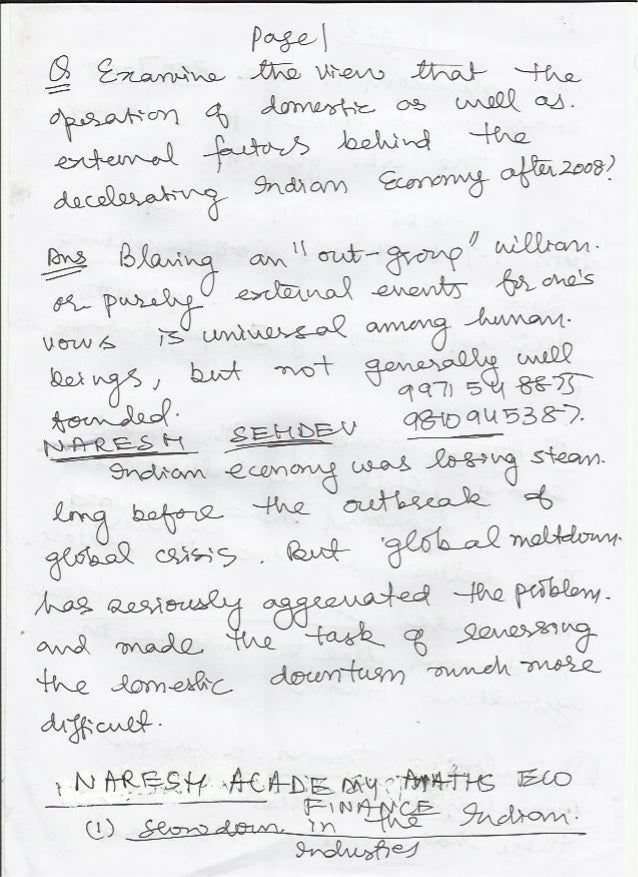 Page 1
Q Examine the view that the
operation of domestic as well as.
external factors behind the
decelerating Indian Economy after 2008?
Ans Blaming an "out-group" villian.
or purely external events for one's
vows is universal among human.
beings, but not generally well
9971548855
founded. 9810945387.
NARESH SEHDEV
Indian economy was losing steam.
long before the outbreak of
global crisis. But global meltdown.
has seriously aggrevated the problem.
and made the task of reversing
the domestic downturn much more
difficult.
NARESH ACADEMY MATHS ECO
FINANCE
(1) Slowdown in the Indian.
Industries